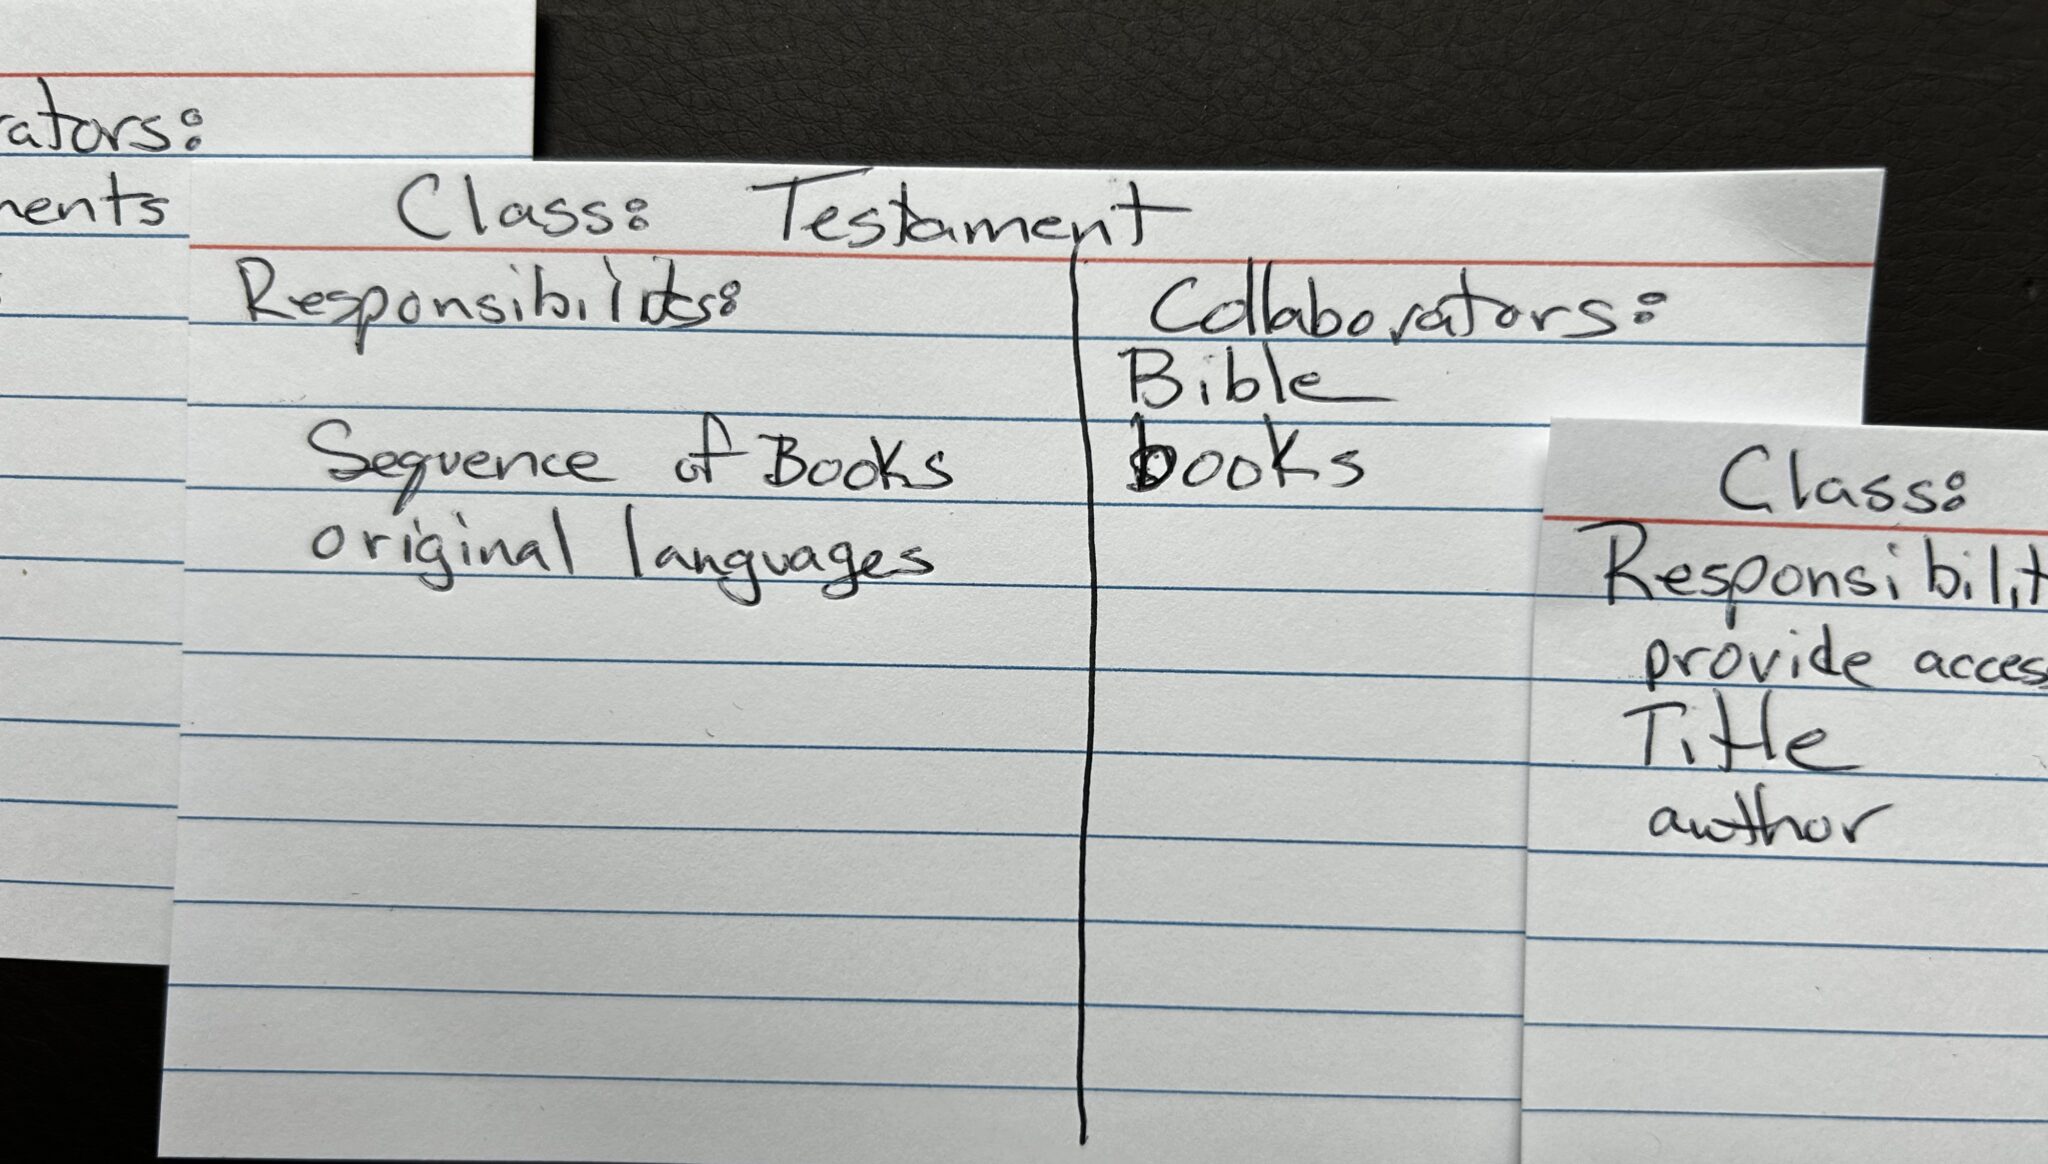 rators:
ments
Class: Testament
Responsibilits:
Sequence of Books
original languages
Collaborators:
Bible
books
Class:
Responsibilit
provide acces
Title
author